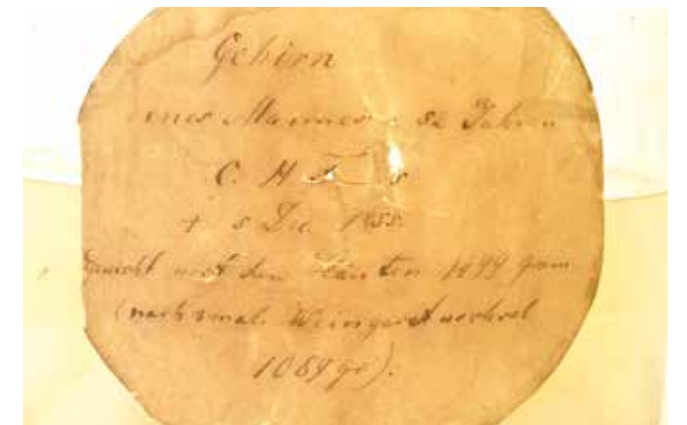 Gehirn
eines Mannes 52 Jahren
C. H. F s
† 5 Dec. 1855.
Gewicht mit den Häuten 1499 gram
(nach 3 mal. Weingeistwechsel
1069 gr).